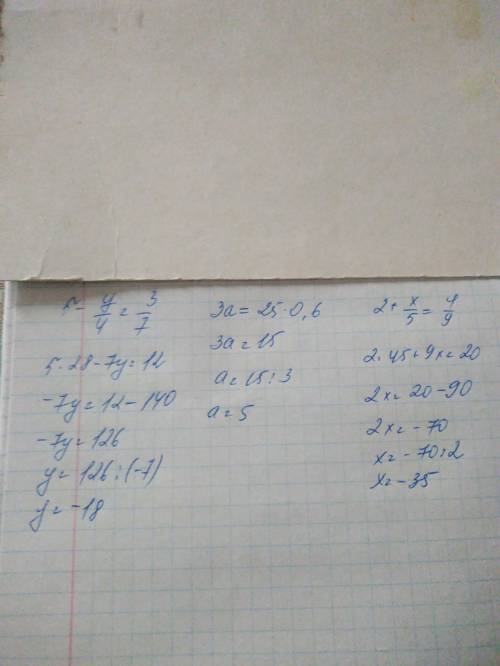 5 - y/4 = 3/7
5·28-7y=12
-7y=12-140
-7y=126
y=126:(-7)
y=-18
3a=25·0,6
3a=15
a=15:3
a=5
2+ x/5 = 4/9
2·45+9x=20
2x=20-90
2x=-70
x=-70:2
x=-35